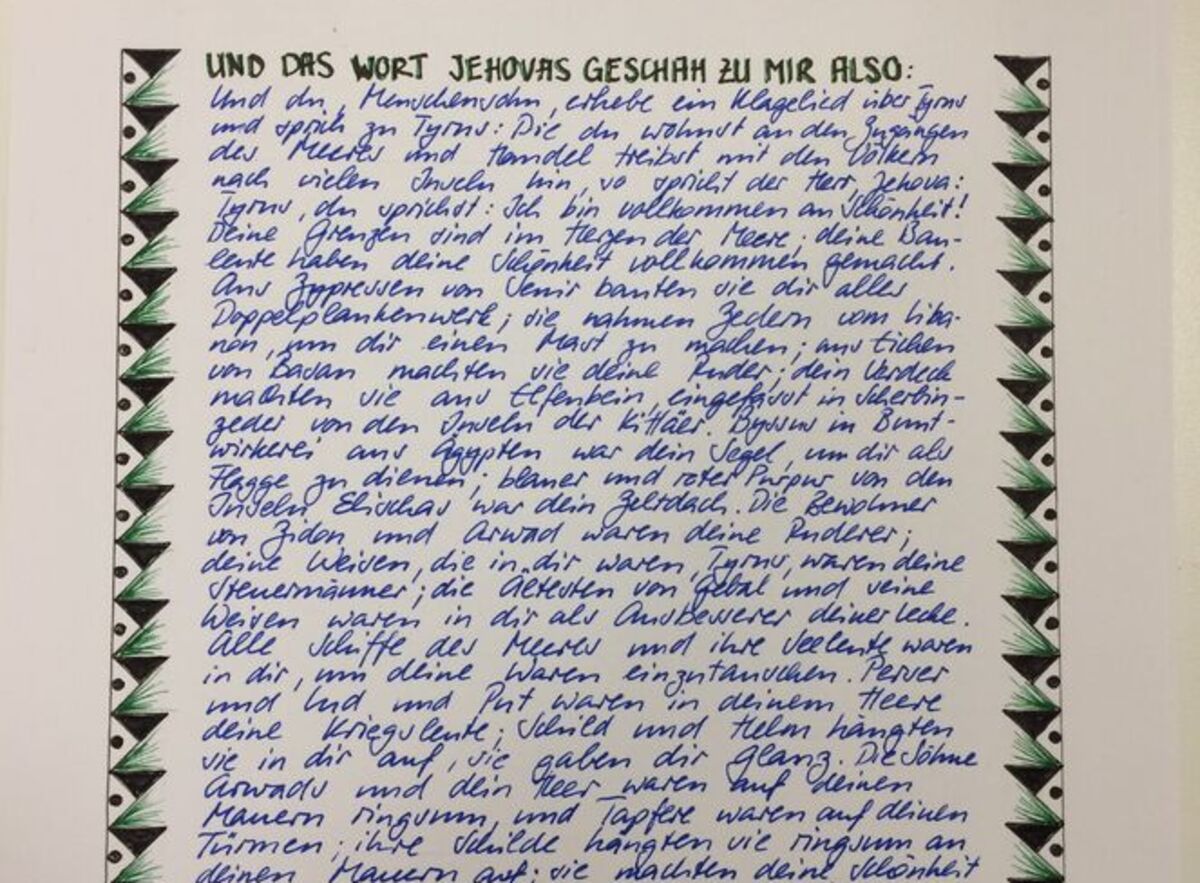 UND DAS WORT JEHOVAS GESCHAH ZU MIR ALSO:
Und du, Menschensohn, erhebe ein Klagelied über Tyrus
und sprich zu Tyrus: Die du wohnst an den Zugängen
des Meeres und Handel treibst mit den Völkern
nach vielen Inseln hin, so spricht der Herr, Jehova:
Tyrus, du sprichst: Ich bin vollkommen an Schönheit!
Deine Grenzen sind im Herzen der Meere; deine Bau-
leute haben deine Schönheit vollkommen gemacht.
Aus Zypressen von Senir bauten sie dir alles
Doppelplankenwerk; sie nahmen Zedern vom Liba-
non, um dir einen Mast zu machen; aus Eichen
von Basan machten sie deine Ruder; dein Verdeck
machten sie aus Elfenbein, eingefasst in Scherbin-
zeder von den Inseln der Kittäer. Byssus in Bunt-
wirkerei aus Ägypten war dein Segel, um dir als
Flagge zu dienen; blauer und roter Purpur von den
Inseln Elischas war dein Zeltdach. Die Bewohner
von Zidon und Arwad waren deine Ruderer;
deine Weisen, die in dir waren, Tyrus, waren deine
Steuermänner; die Ältesten von Gebal und seine
Weisen waren in dir als Ausbesserer deiner Lecke.
Alle Schiffe des Meeres und ihre Seeleute waren
in dir, um deine Waren einzutauschen. Perser
und Lud und Put waren in deinem Heere
deine Kriegsleute; Schild und Helm hängten
sie in dir auf, sie gaben dir Glanz. Die Söhne
Arwads und dein Heer waren auf deinen
Mauern ringsum, und Tapfere waren auf deinen
Türmen; ihre Schilde hängten sie ringsum an
deinen Mauern auf; sie machten deine Schönheit